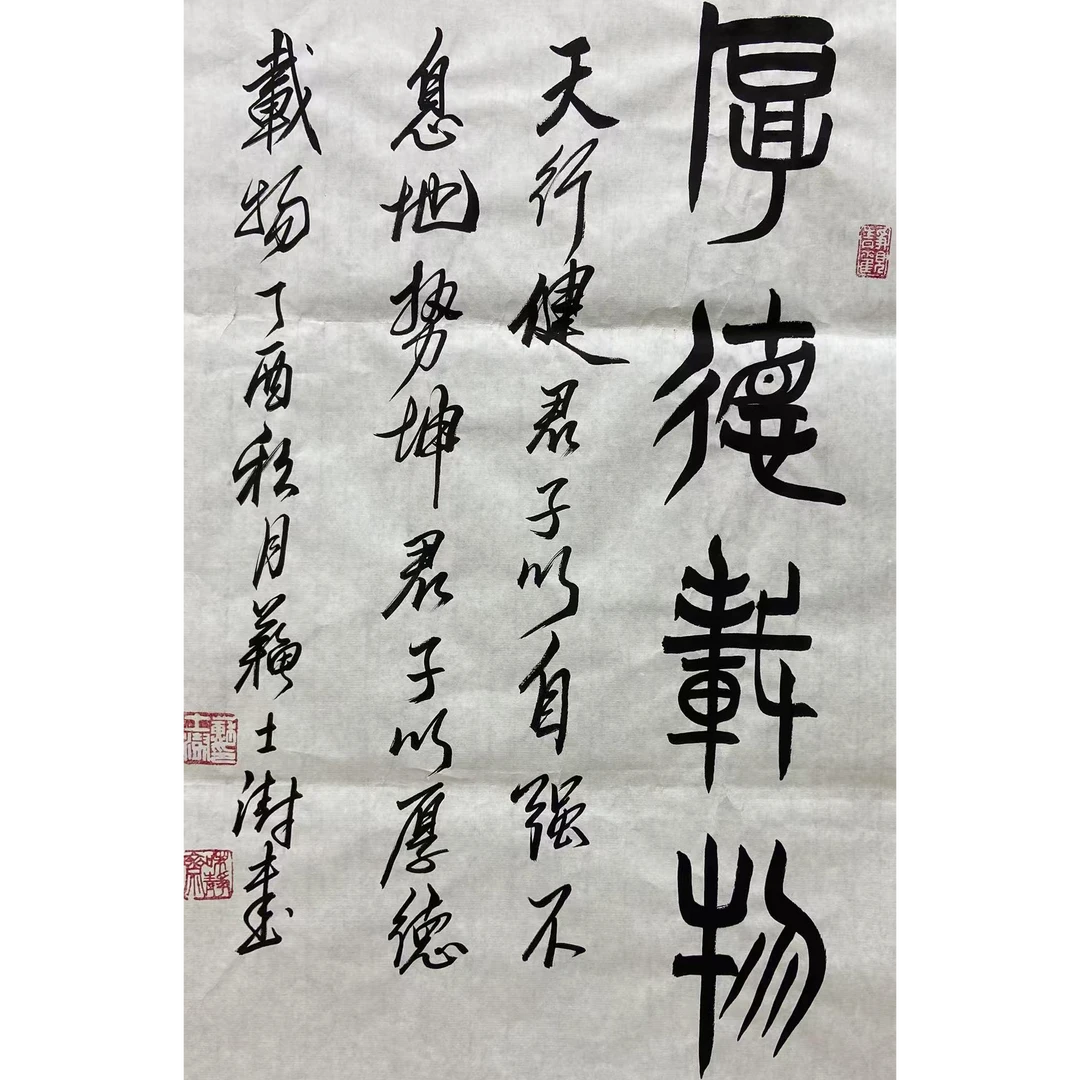 厚德載物
天行健君子以自强不
息地势坤君子以厚德
載物丁酉秋月蘇士澍書